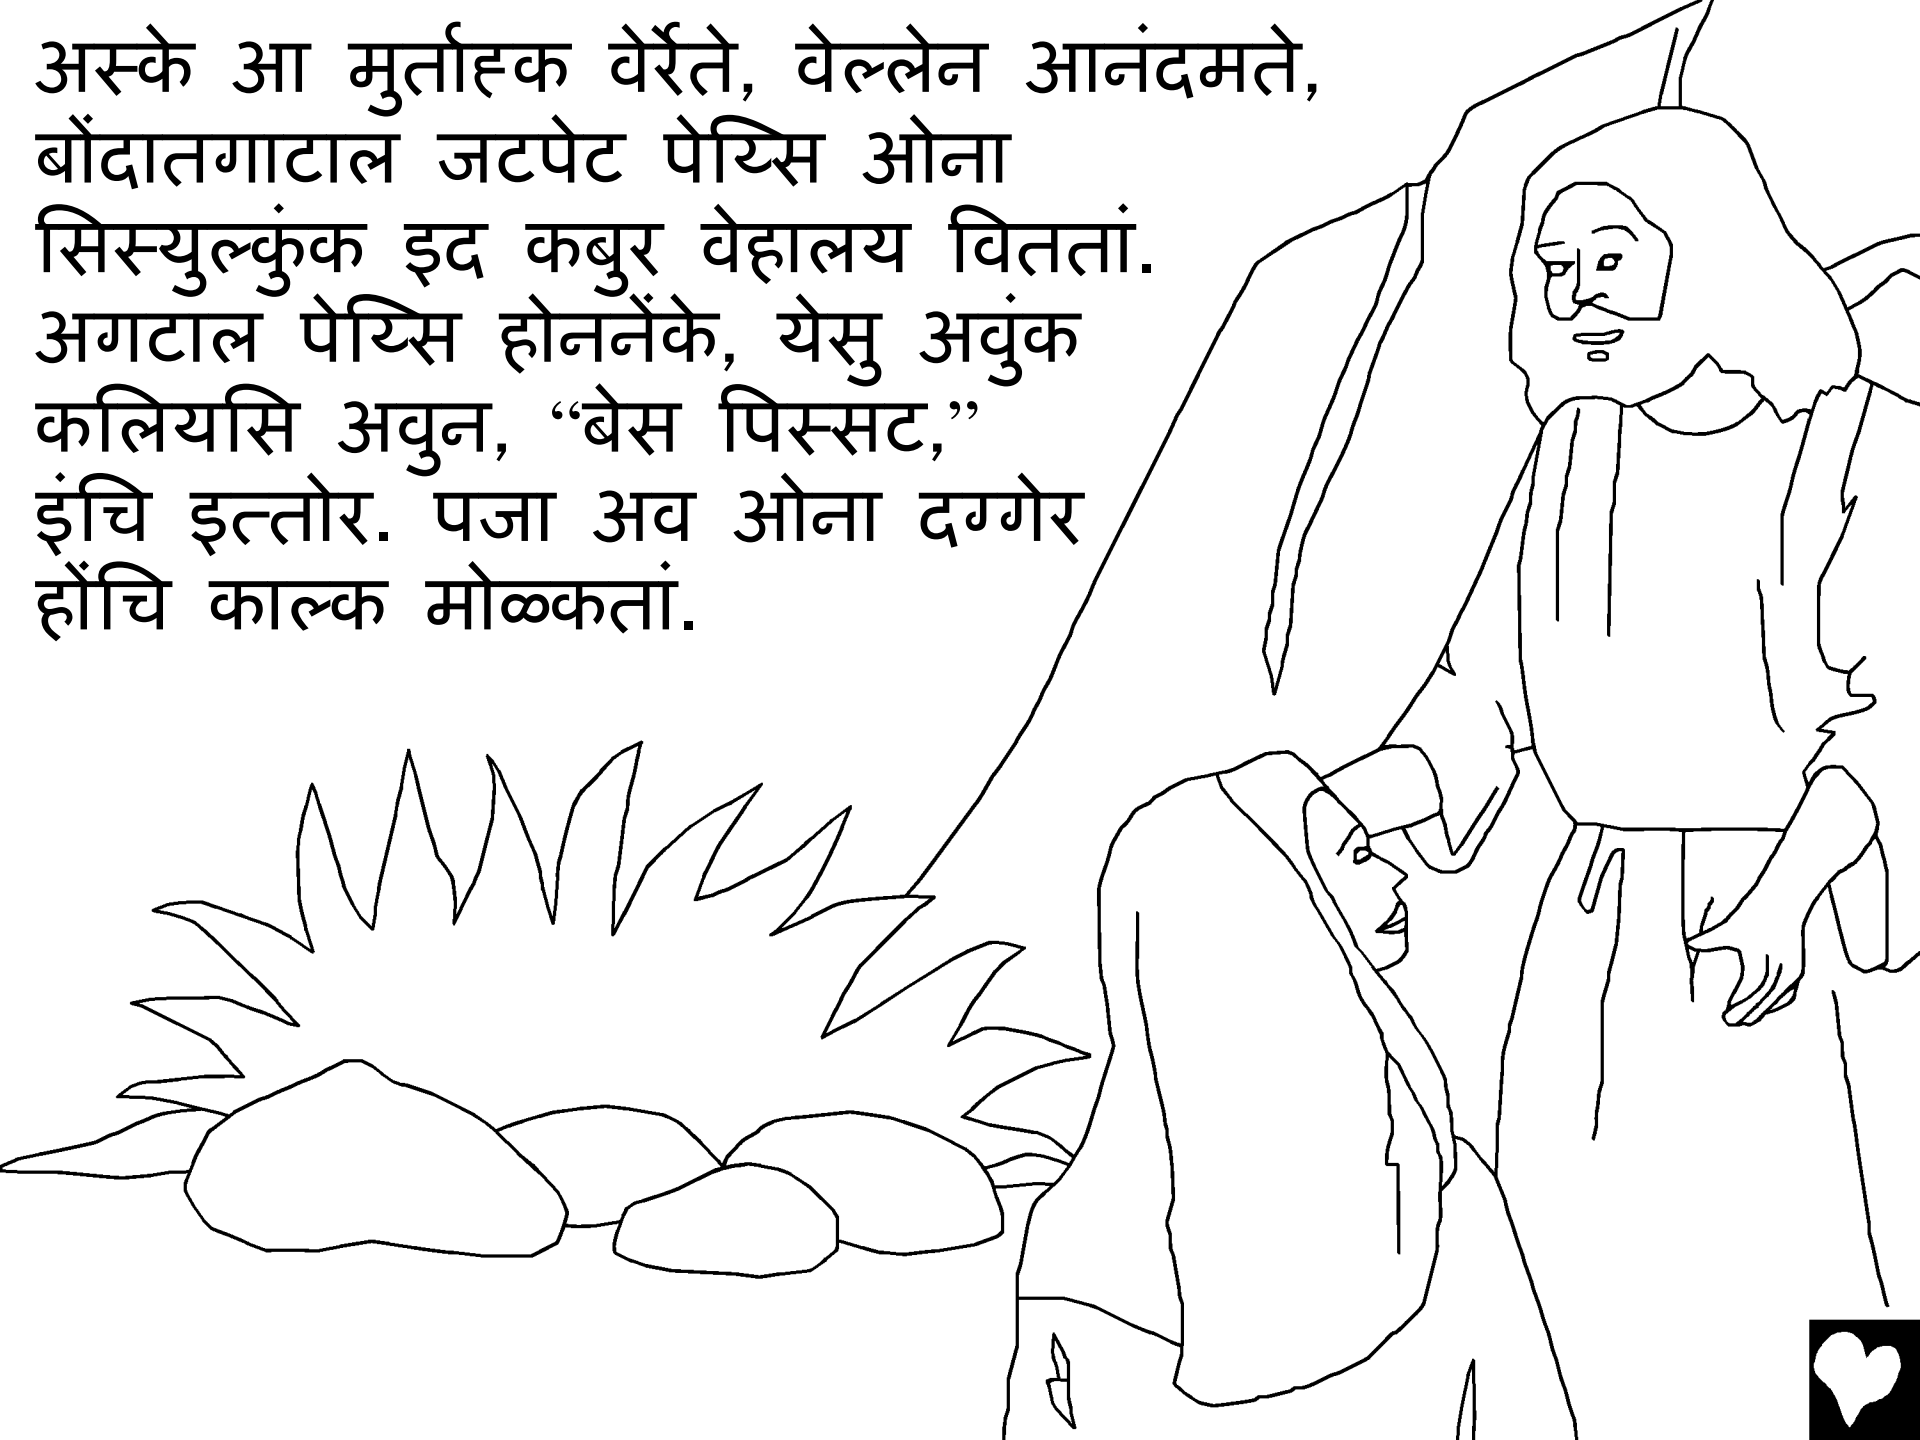 अस्के आ मुर्ताह्क वेर्रैते, वेल्लेन आनंदमते,
बोंदातगाटाल जटपेट पेय्सि ओना
सिस्युल्कुंक इद कबुर वेहालय विततां.
अगटाल पेय्सि होननेंके, येसु अवुंक
कलियसि अवुन, “बेस पिस्सट,”
इंचि इत्तोर. पजा अव ओना दग्गेर
होंचि काल्क मोळ्कतां.